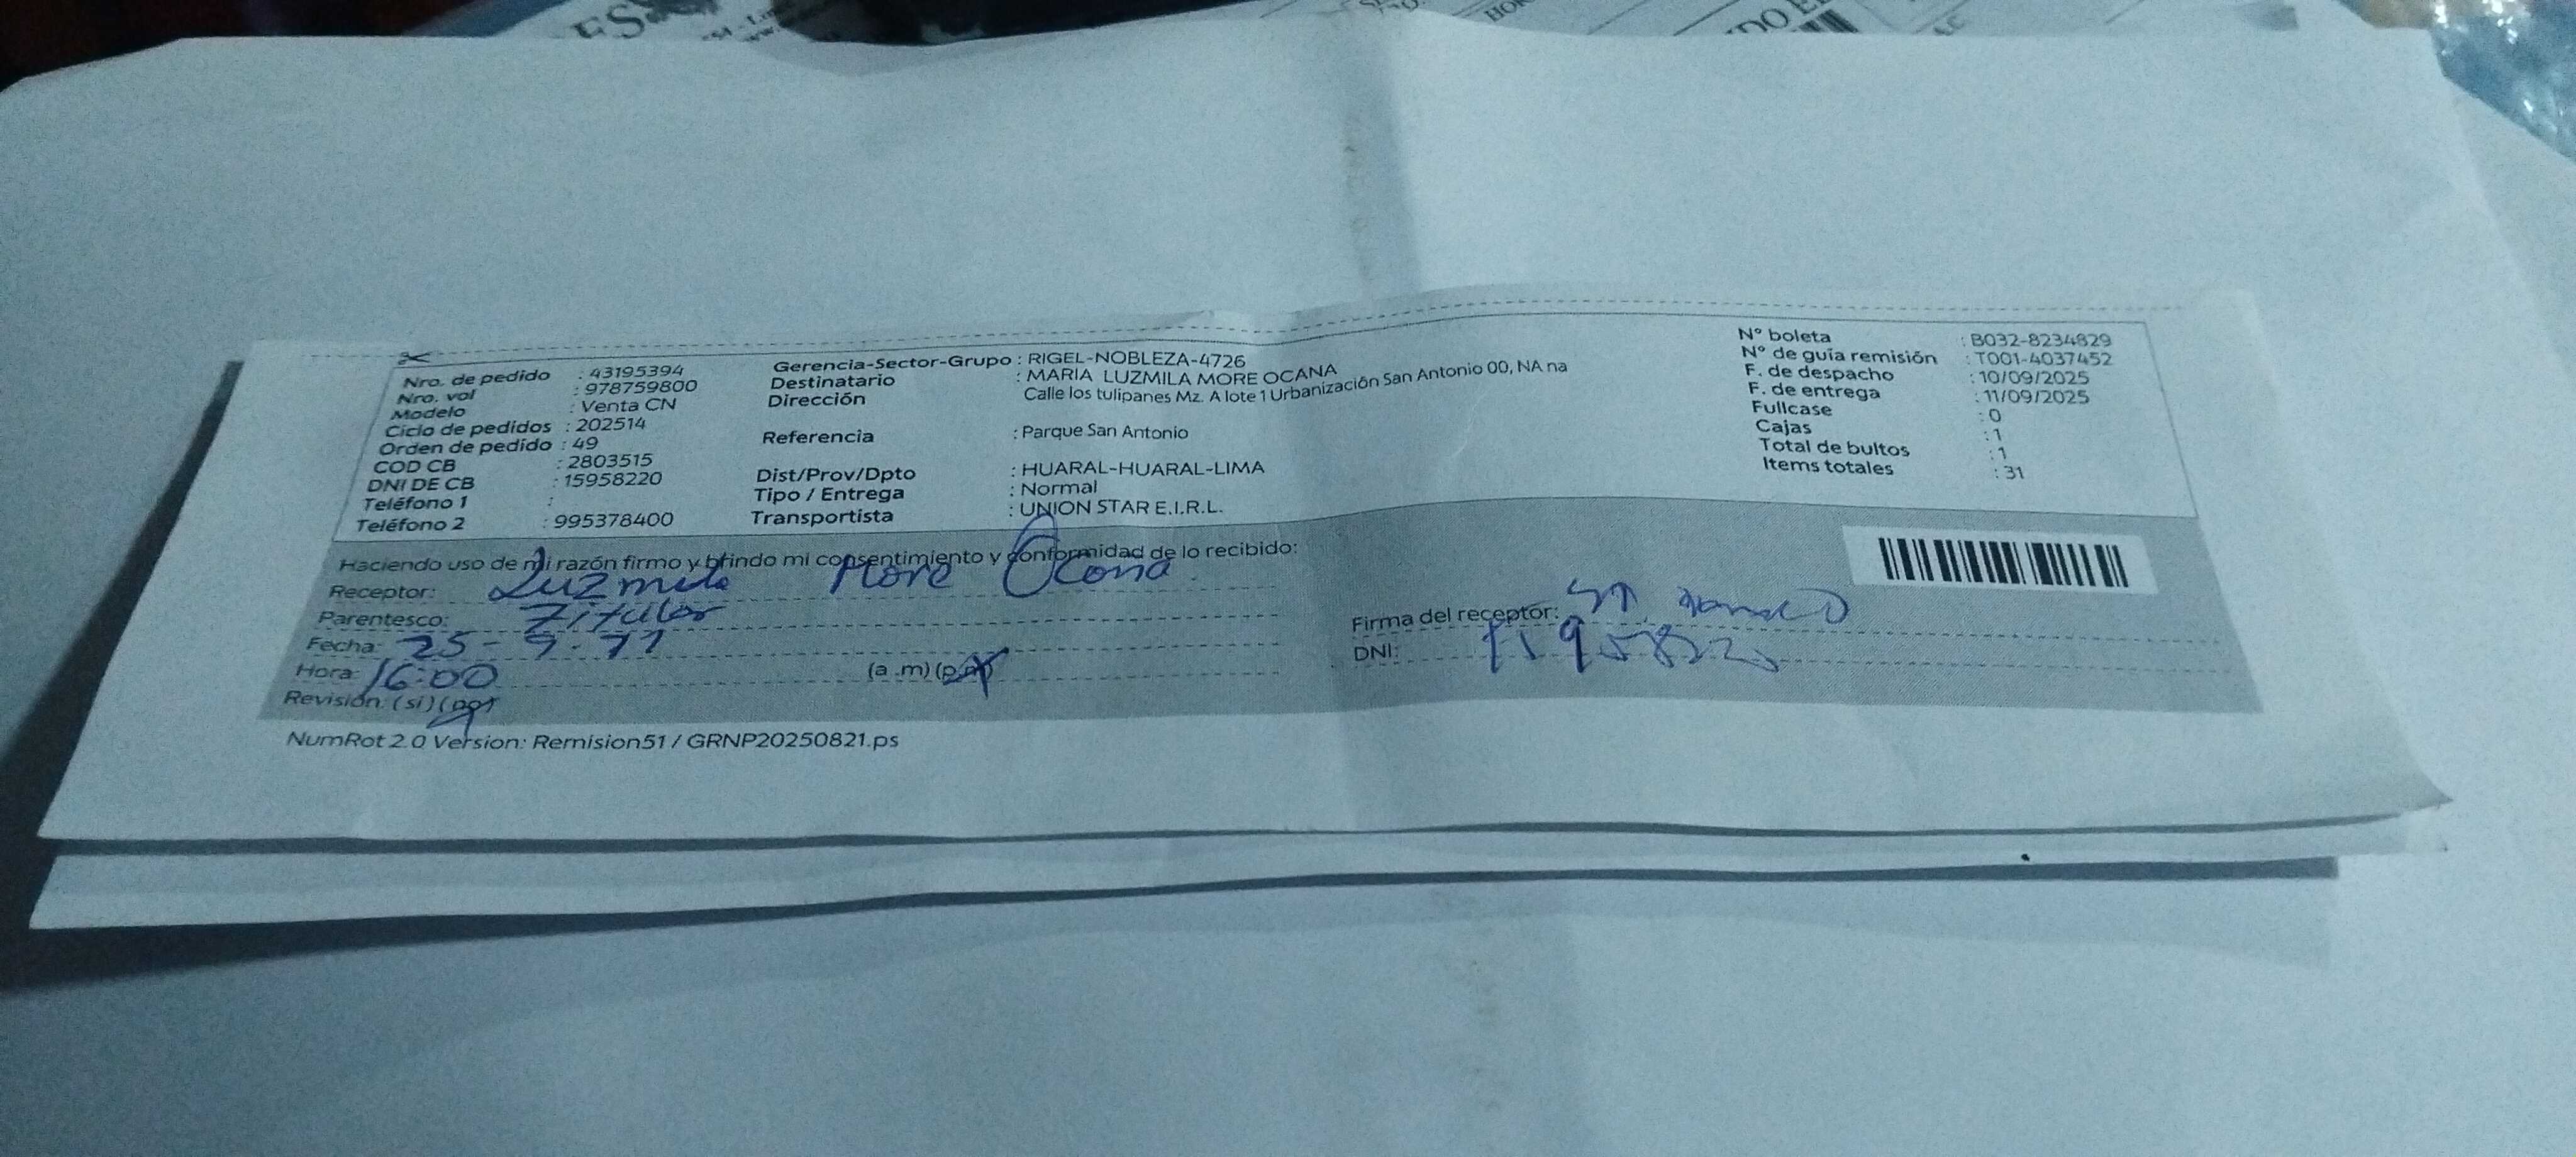 Nro. de pedido : 43195394
Nro. vol : 978759800
Modelo : Venta CN
Ciclo de pedidos : 202514
Orden de pedido : 49
COD CB : 2803515
DNI DE CB : 15958220
Teléfono 1 :
Teléfono 2 : 995378400
Gerencia-Sector-Grupo : RIGEL-NOBLEZA-4726
Destinatario : MARIA LUZMILA MORE OCANA
Dirección Calle los tulipanes Mz. A lote 1 Urbanización San Antonio 00, NA na
Referencia : Parque San Antonio
Dist/Prov/Dpto : HUARAL-HUARAL-LIMA
Tipo / Entrega : Normal
Transportista : UNION STAR E.I.R.L.
N° boleta : B032-8234829
N° de guía remisión : T001-4037452
F. de despacho : 10/09/2025
F. de entrega : 11/09/2025
Fullcase : 0
Cajas : 1
Total de bultos : 1
Items totales : 31
Haciendo uso de mi razón firmo y brindo mi consentimiento y conformidad de lo recibido:
Receptor: Luzmila More Ocaña
Parentesco: Titular
Fecha: 25-9-11
Hora: 16:00 (a.m) (p.m)
Revisión: (si) (no)
Firma del receptor:
DNI:
NumRot 2.0 Version: Remision51 / GRNP20250821.ps